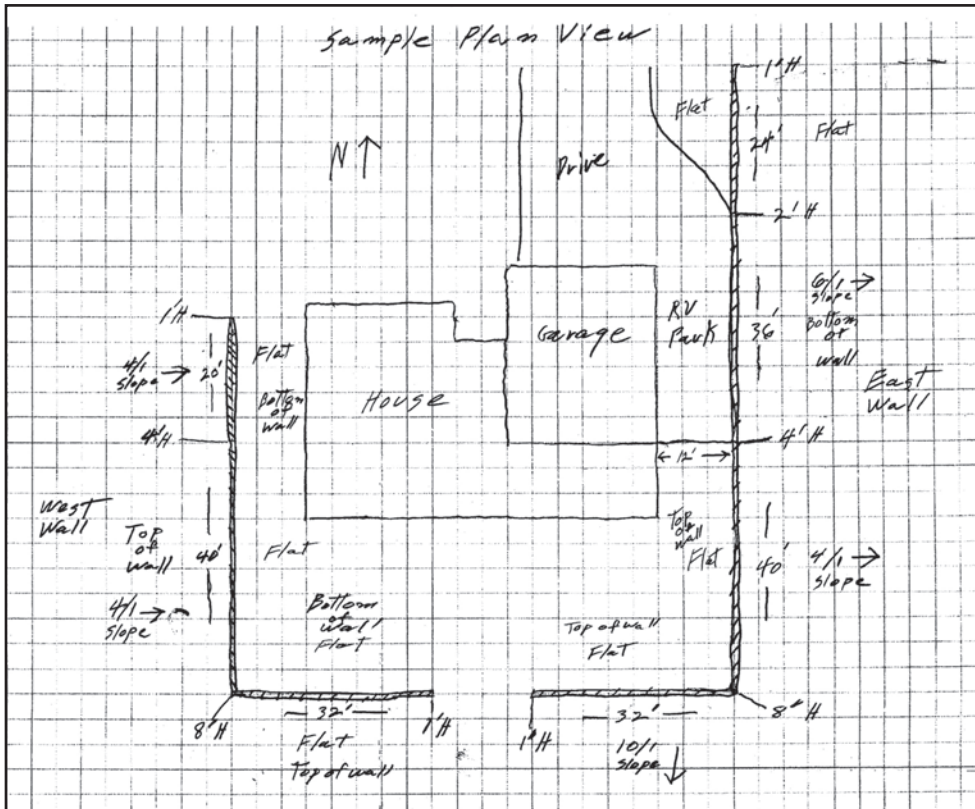 Sample Plan View
1'H
Flat
24'
Flat
N
Drive
2'H
6/1
Slope
Bottom
of
wall
36'
RV
Park
Garage
1'H
4/1
Slope
20'
Flat
Bottom
of
wall
House
East
Wall
4'H
4'H
12'
West
Wall
Top
of
wall
40'
Flat
Top
of
wall
Flat
40'
4/1
Slope
4/1
Slope
Bottom
of
Wall
Flat
Top of wall
Flat
8'H
32'
1'H
1'H
32'
8'H
Flat
Top of wall
10/1
Slope